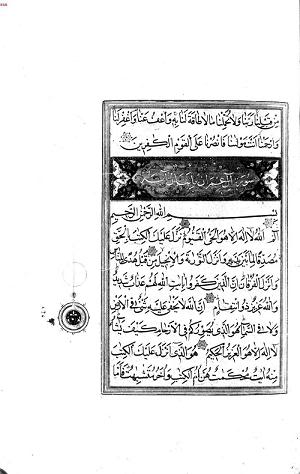 مِن قَبْلِنَا رَبَّنَا وَلَا تُحَمِّلْنَا مَا لَا طَاقَةَ لَنَا بِهِ وَاعْفُ عَنَّا وَاغْفِرْ لَنَا
وَارْحَمْنَا أَنْتَ مَوْلَانَا فَانْصُرْنَا عَلَى الْقَوْمِ الْكٰفِرِينَ
سورة آل عمران
بسم الله الرحمن الرحيم
الم اللهُ لَا إِلٰهَ إِلَّا هُوَ الْحَيُّ الْقَيُّومُ نَزَّلَ عَلَيْكَ الْكِتٰبَ بِالْحَقِّ
مُصَدِّقًا لِمَا بَيْنَ يَدَيْهِ وَأَنْزَلَ التَّوْرٰيةَ وَالْإِنْجِيلَ مِنْ قَبْلُ هُدًى لِلنَّاسِ
وَأَنْزَلَ الْفُرْقَانَ إِنَّ الَّذِينَ كَفَرُوا بِآيٰتِ اللهِ لَهُمْ عَذَابٌ شَدِيدٌ
وَاللهُ عَزِيزٌ ذُو انْتِقَامٍ إِنَّ اللهَ لَا يَخْفٰى عَلَيْهِ شَيْءٌ فِي الْأَرْضِ
وَلَا فِي السَّمَاءِ هُوَ الَّذِي يُصَوِّرُكُمْ فِي الْأَرْحَامِ كَيْفَ يَشَاءُ
لَا إِلٰهَ إِلَّا هُوَ الْعَزِيزُ الْحَكِيمُ هُوَ الَّذِي أَنْزَلَ عَلَيْكَ الْكِتٰبَ
مِنْهُ آيٰتٌ مُحْكَمٰتٌ هُنَّ أُمُّ الْكِتٰبِ وَأُخَرُ مُتَشٰبِهٰتٌ فَأَمَّا